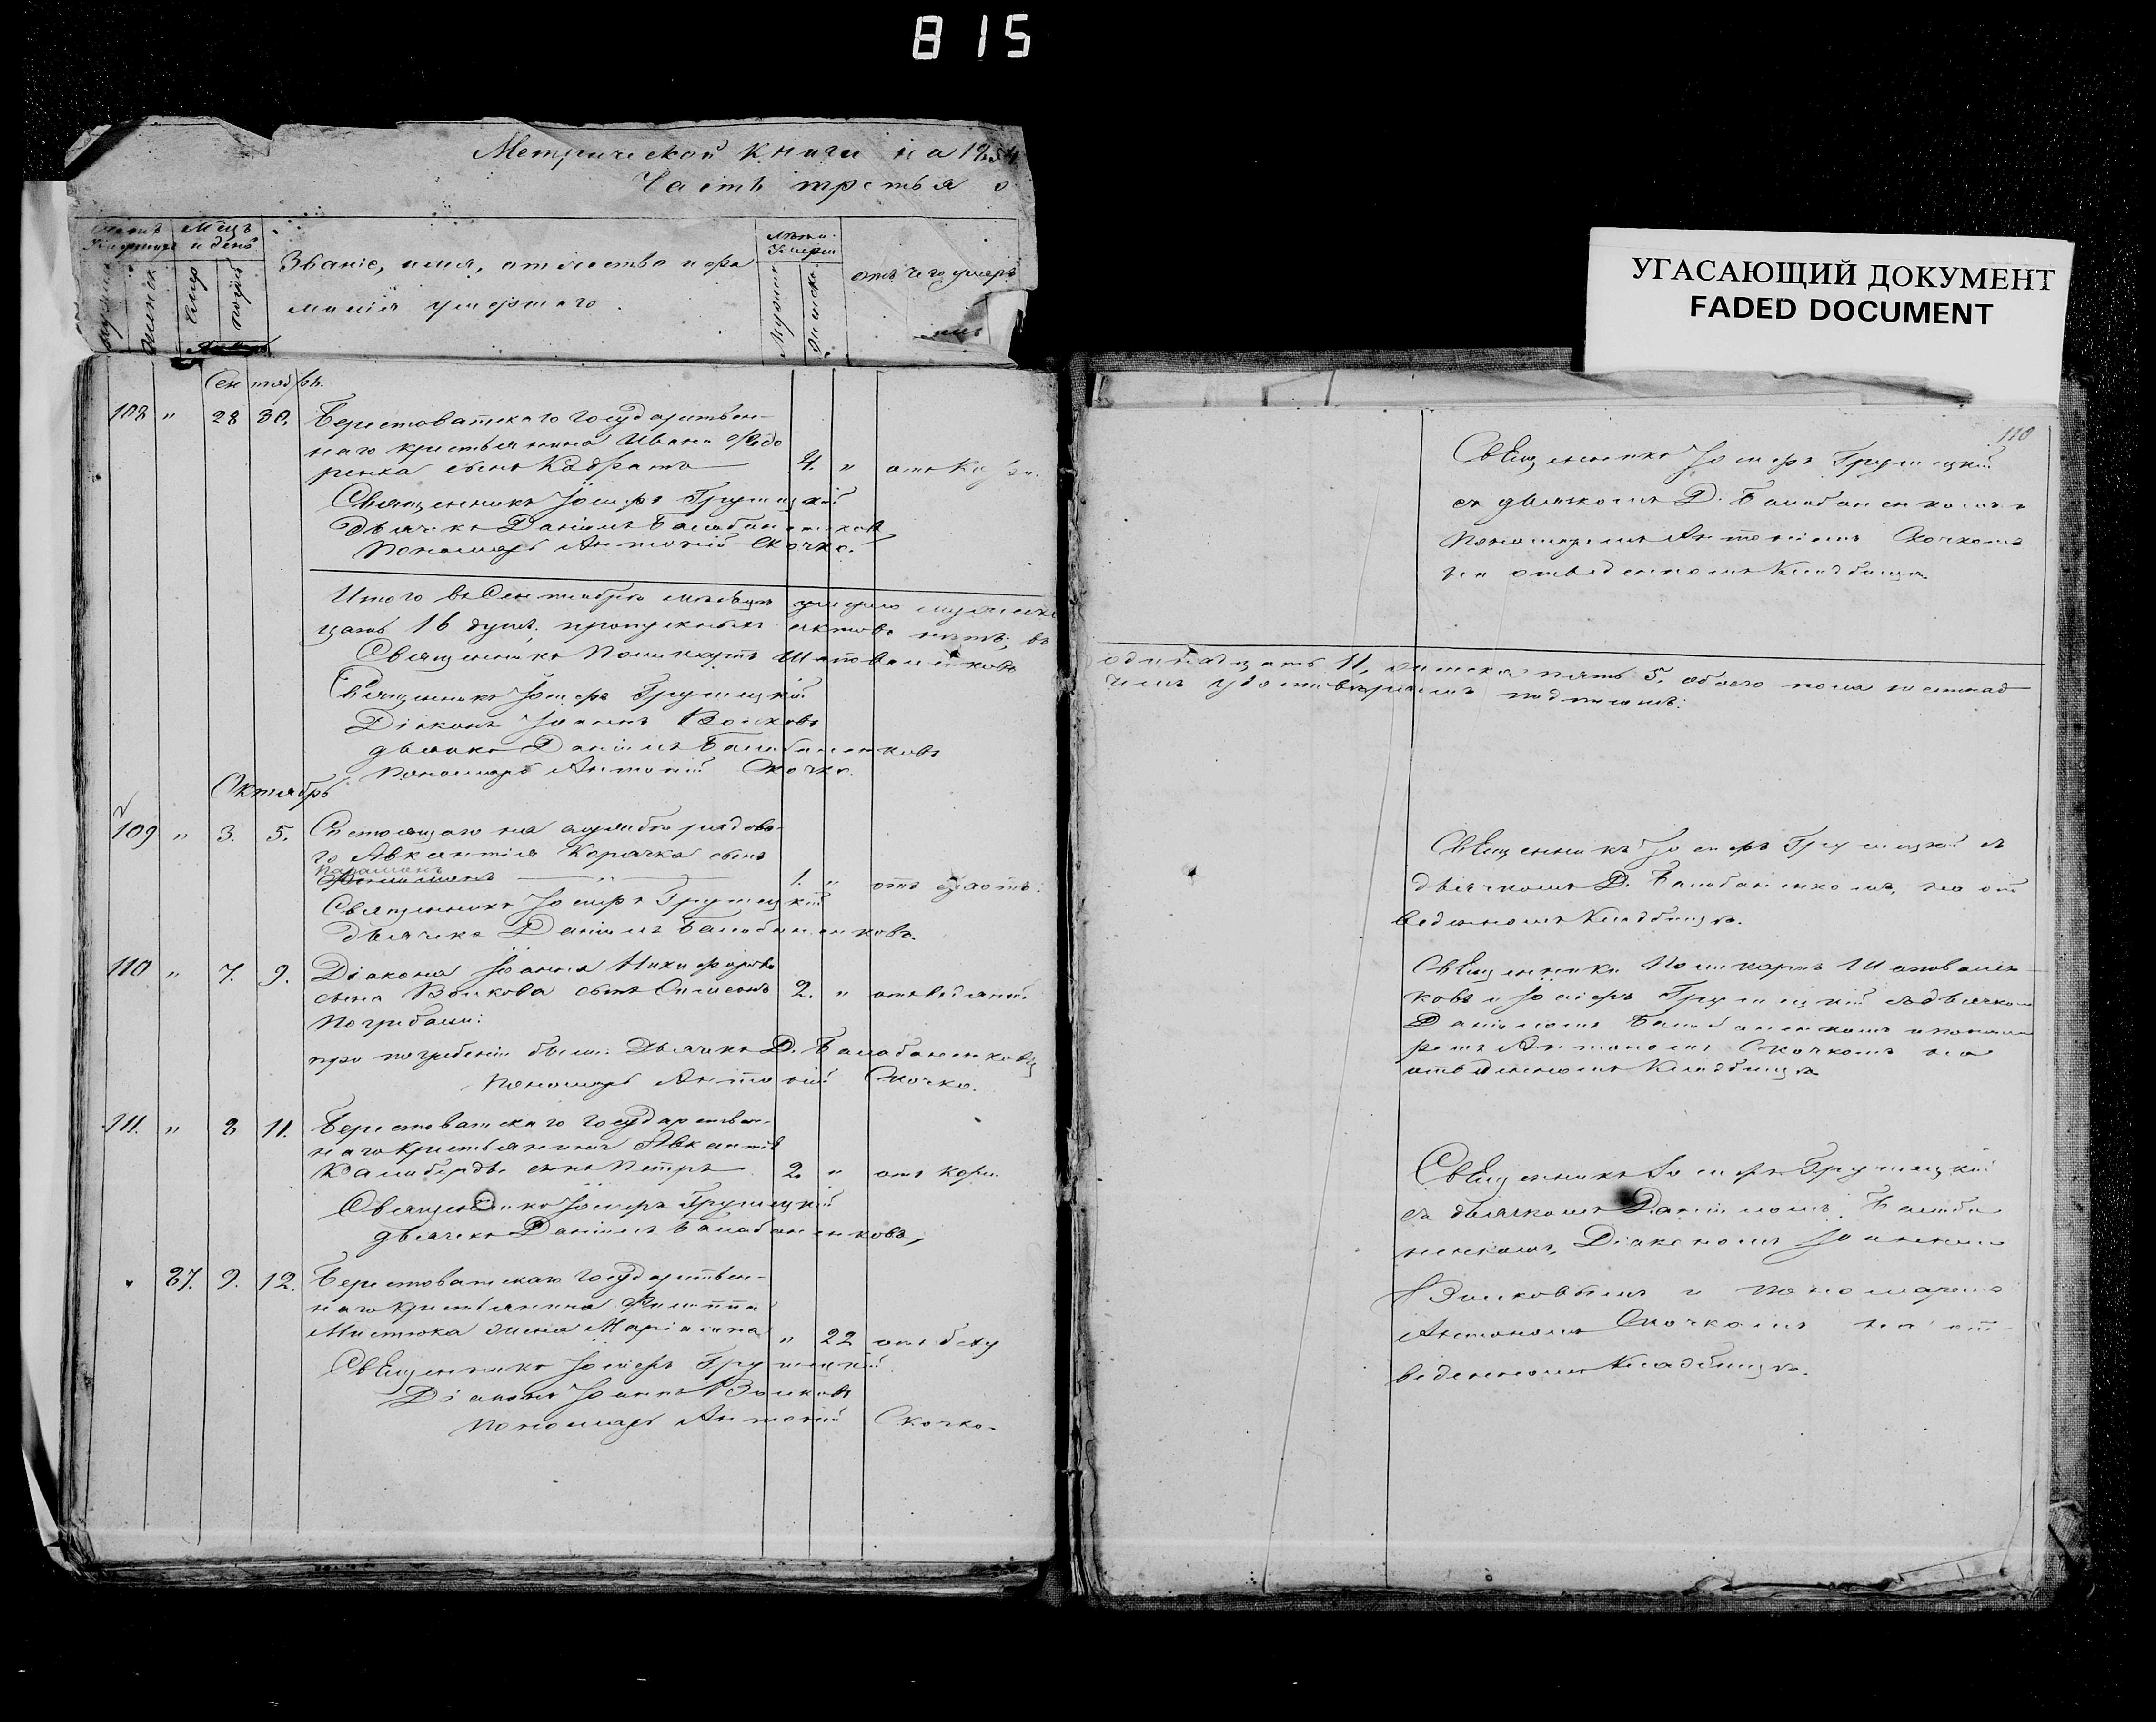 815
Метрической Книги на 1854
Часть третья о
Мѣсць
и день
Званіе, имя, отчество и фа
милія умершаго.
Лѣта
Умерш
отъ чего умеръ
УГАСАЮЩИЙ ДОКУМЕНТ
FADED DOCUMENT
110
Сентябрь.
108 " 28 30. Берестоватскаго государствен-
наго крестьянина Ивана Федо
ренка сынъ Кодратъ 4. " отъ
Священникъ Іосифъ Грушецкій
дьячекъ Даніилъ Балабаненковъ
Пономарь Антоній Скочко.
Итого въ Сентябрѣ мѣсяцѣ умерло мужеска
цать 16 душъ; пропускныхъ актовъ нѣтъ; въ
Священникъ Поликарпъ Шаповаленковъ
Священникъ Іосифъ Грушецкій
Діаконъ Іоаннъ Волковъ
дьячекъ Даніилъ Балабаненковъ
Пономарь Антоній Скочко.
Октябрь
109 " 3. 5. Состоящаго на службѣ рядова-
го Авксентія Корячка сынъ
Парамонъ
1. " отъ
Священникъ Іосифъ Грушецкій
дьячекъ Даніилъ Балабаненковъ.
110 " 7. 9. Діакона Іоанна Никифорова
сына Волкова сынъ Симеонъ 2. " отъ водяной.
Погребали:
при погребеніи были: Дьячекъ Д. Балабаненковъ
Пономарь Антоній Скочко.
111. " 8 11. Берестоватскаго государствен-
наго крестьянина Авксентія
сынъ Петръ 2. " отъ кори.
Священникъ Іосифъ Грушецкій
дьячекъ Даніилъ Балабаненковъ,
" 27. 9. 12. Берестоватскаго государствен-
наго крестьянина Филиппа
Мистюка жена Маріамна " 22 отъ
Священникъ Іосифъ Грушецкій
Діаконъ Іоаннъ Волковъ
пономарь Антоній Скочко.
Священникъ Іосифъ Грушецкій
съ дьячкомъ Д. Балабаненкомъ и
Пономаремъ Антоніемъ Скочкомъ
на отведенномъ Кладбищѣ.
одинадцать 11, женска пять 5. обоего пола шестнад
чемъ удостовѣряемъ подписомъ:
Священникъ Іосифъ Грушецкій съ
дьячкомъ Д. Балабаненкомъ, на от
веденномъ Кладбищѣ.
Священники Поликарпъ Шаповален-
ковъ и Іосифъ Грушецкій съ дьячкомъ
Даніиломъ Балабаненкомъ и понома
ремъ Антономъ Скочкомъ на
отведенномъ Кладбищѣ.
Священникъ Іосифъ Грушецкій
съ дьячкомъ Даніиломъ Балаба
ненкомъ, Діакономъ Іоанномъ
Волковымъ и пономаремъ
Антономъ Скочкомъ на от-
веденномъ Кладбищѣ.